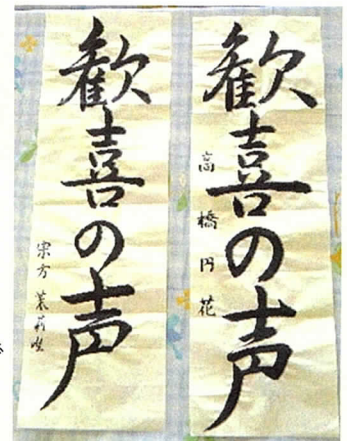 歓喜の声
高橋円花
歓喜の声
宗方